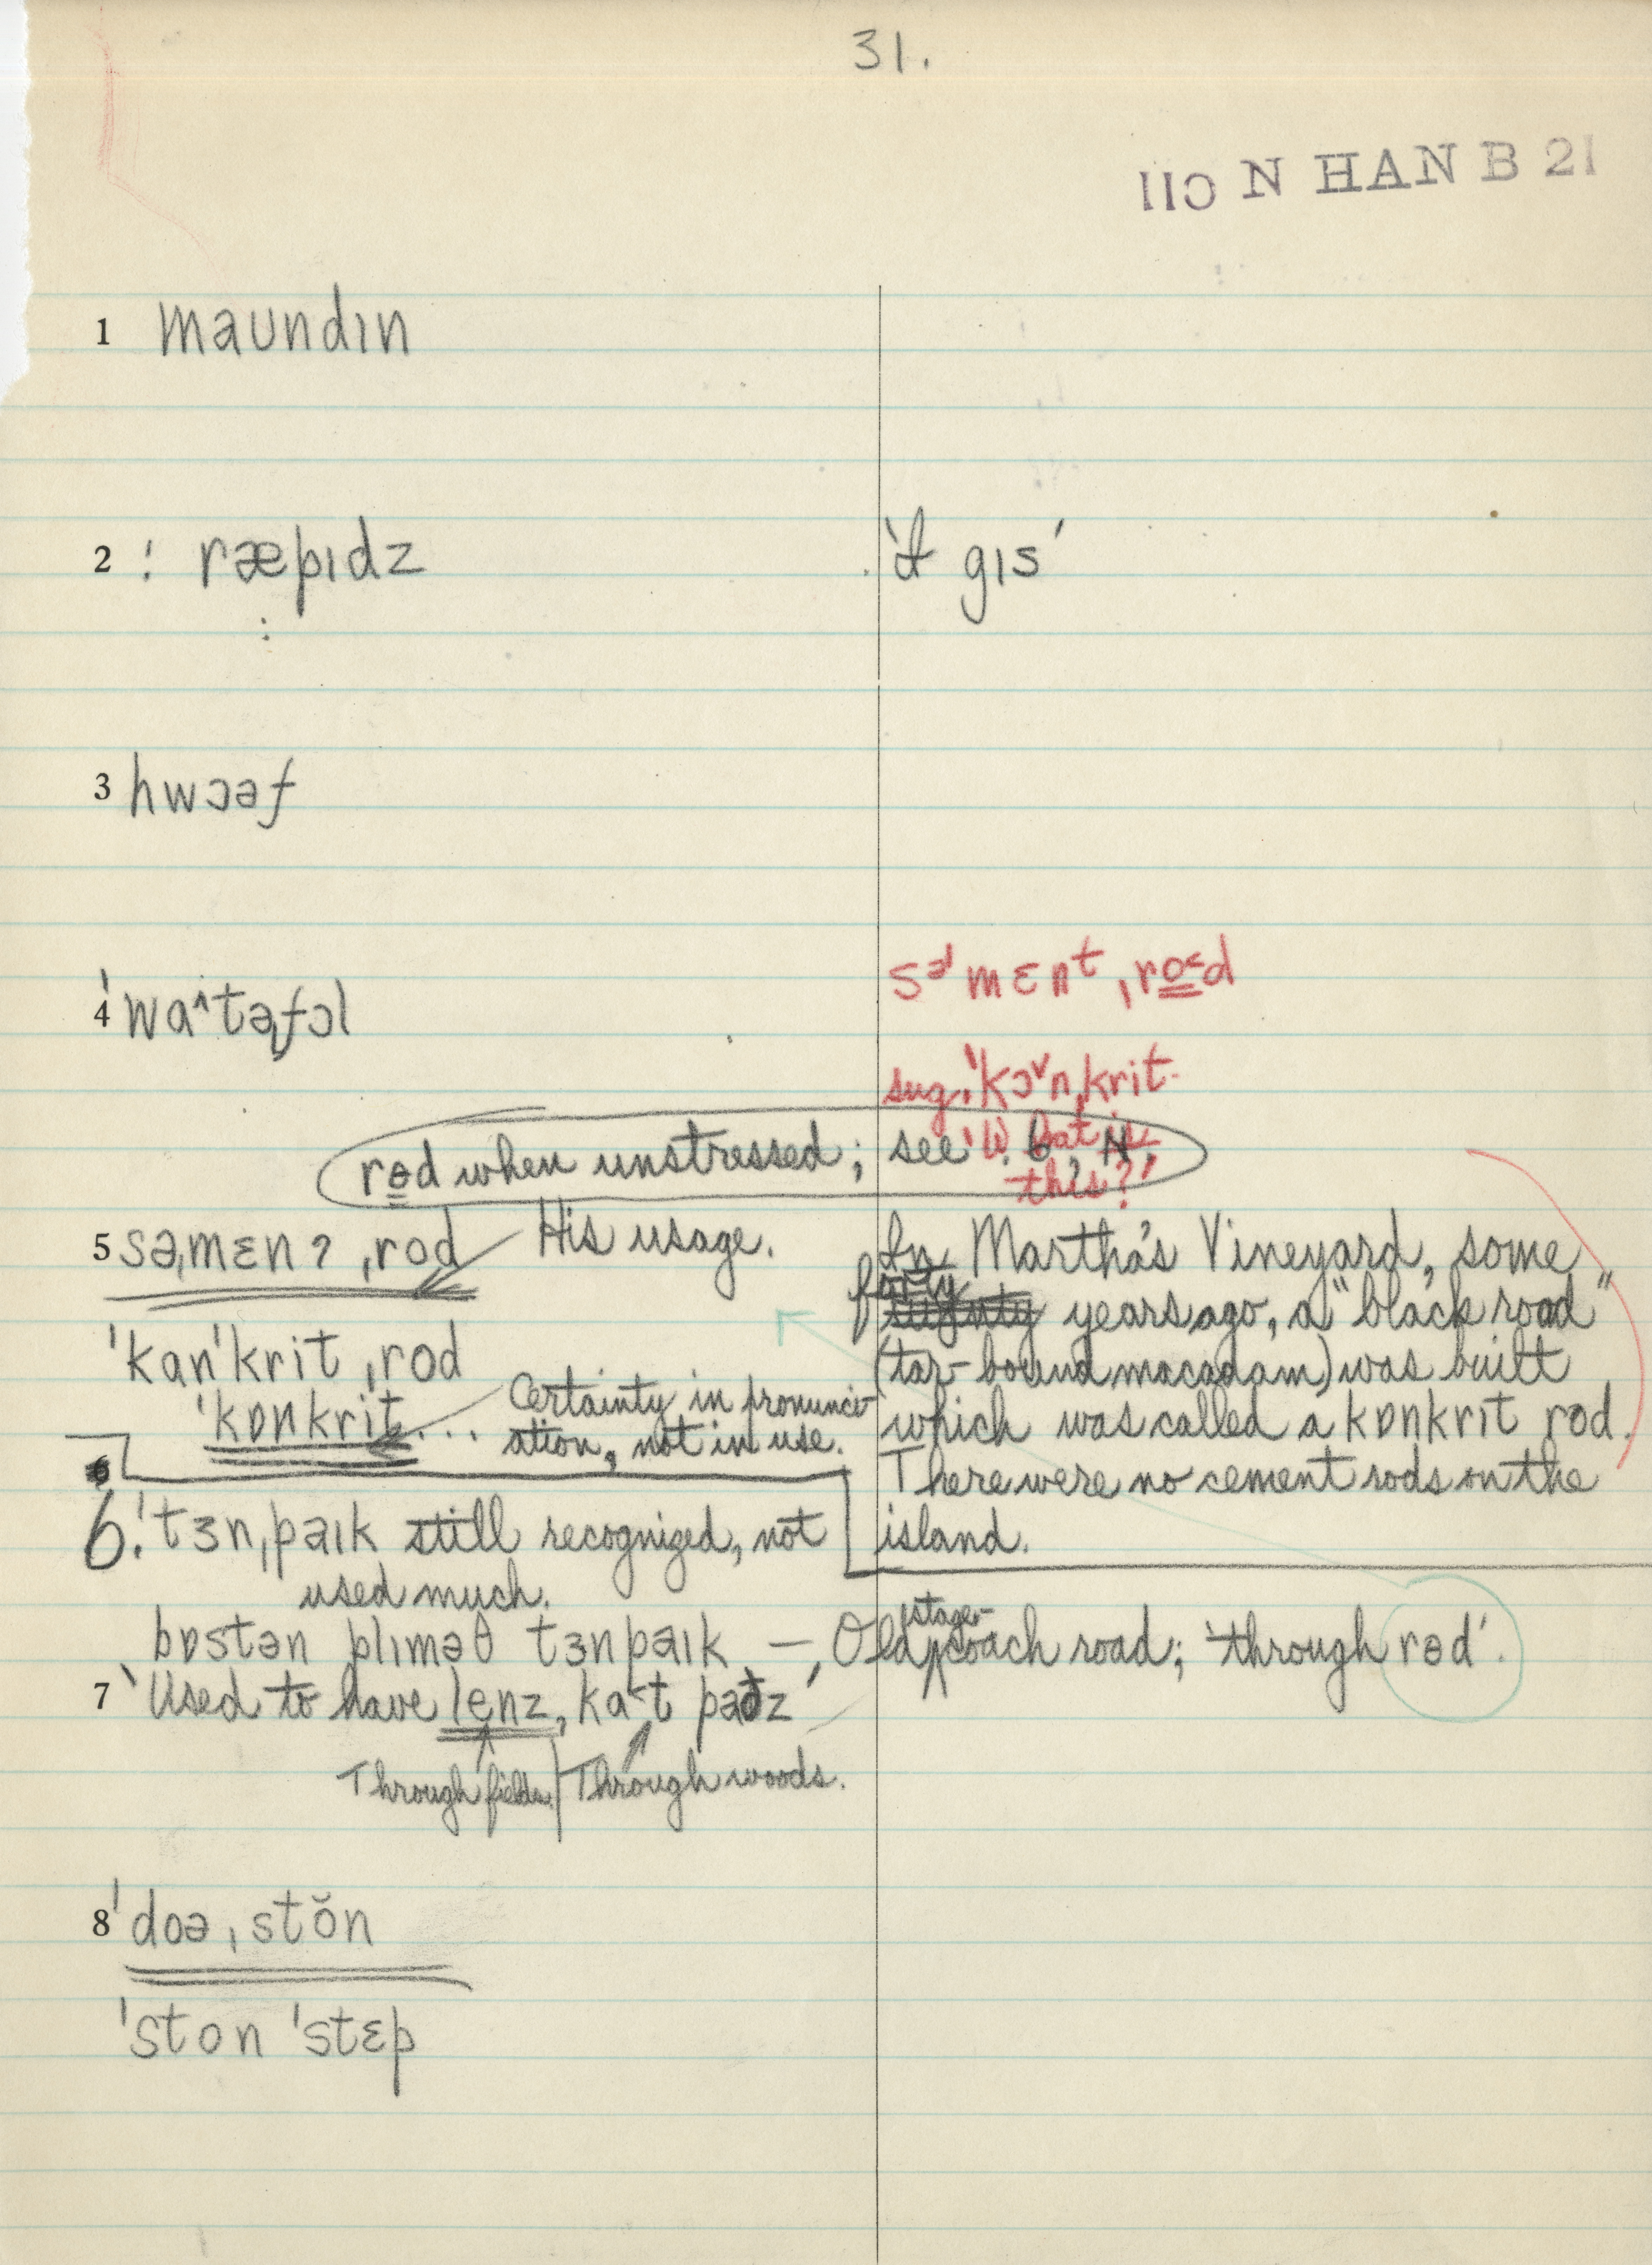 31.
110 N HAN B 21
1 maundɪn
2 ! ræpɪdz
'I gɪs'
3 hwɔəf
4 'wɑ^təfɔl
sə˩mɛnᵗ ˌro˂d
sug. 'kɔ˅nˌkrit.
'What is
this?'
rɵd when unstressed; see . 6, N,
5 səˌmɛnʔ ˌrod His usage.
'kɑn'krit ˌrod
'kɒnkrit... Certainty in pronunci-
ation, not in use.
In Martha's Vineyard, some
forty
years ago, a "black road"
(tar-bound macadam) was built
which was called a kɒnkrit rod.
There were no cement rods on the
island.
6. 'tɜnˌpaɪk still recognized, not
used much.
bɒstən plɪməθ tɜnpaɪk — 'Old stage-coach road; 'through rɵd'.
7 'Used to have lenz, ka˂t paðz'
Through fields. | Through woods.
8 'doəˌstŏn
'ston 'stɛp